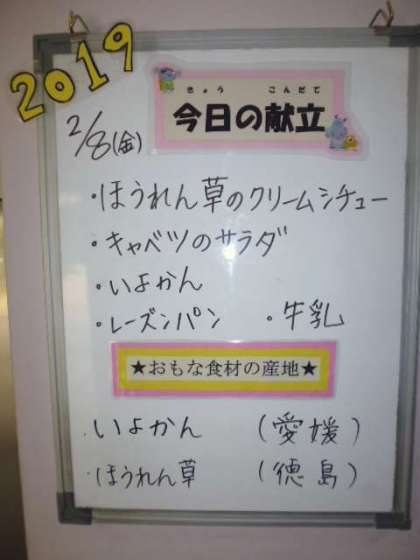 2019
きょう こんだて
今日の献立
2/8(金)
・ほうれん草のクリームシチュー
・キャベツのサラダ
・いよかん
・レーズンパン ・牛乳
★おもな食材の産地★
・いよかん (愛媛)
・ほうれん草 (徳島)